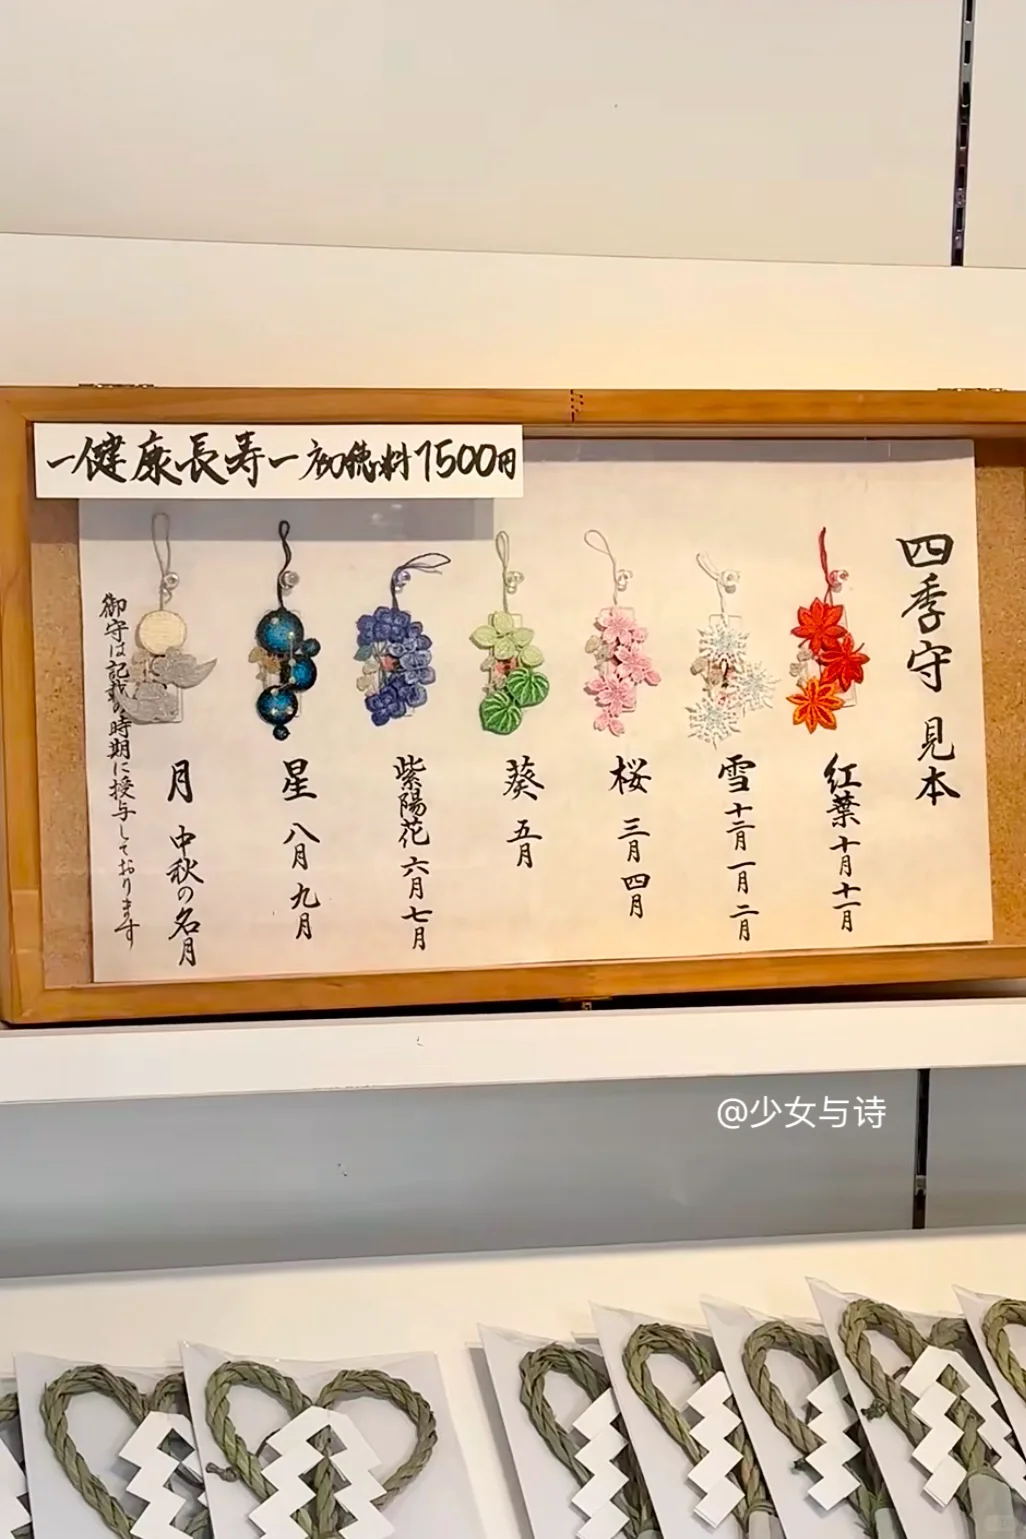 一健康長寿一 初穂料1500円
四季守 見本
紅葉 十月 十一月
雪 十二月 一月 二月
桜 三月 四月
葵 五月
紫陽花 六月 七月
星 八月 九月
月 中秋の名月
御守は記載の時期に授与しております
@少女与诗